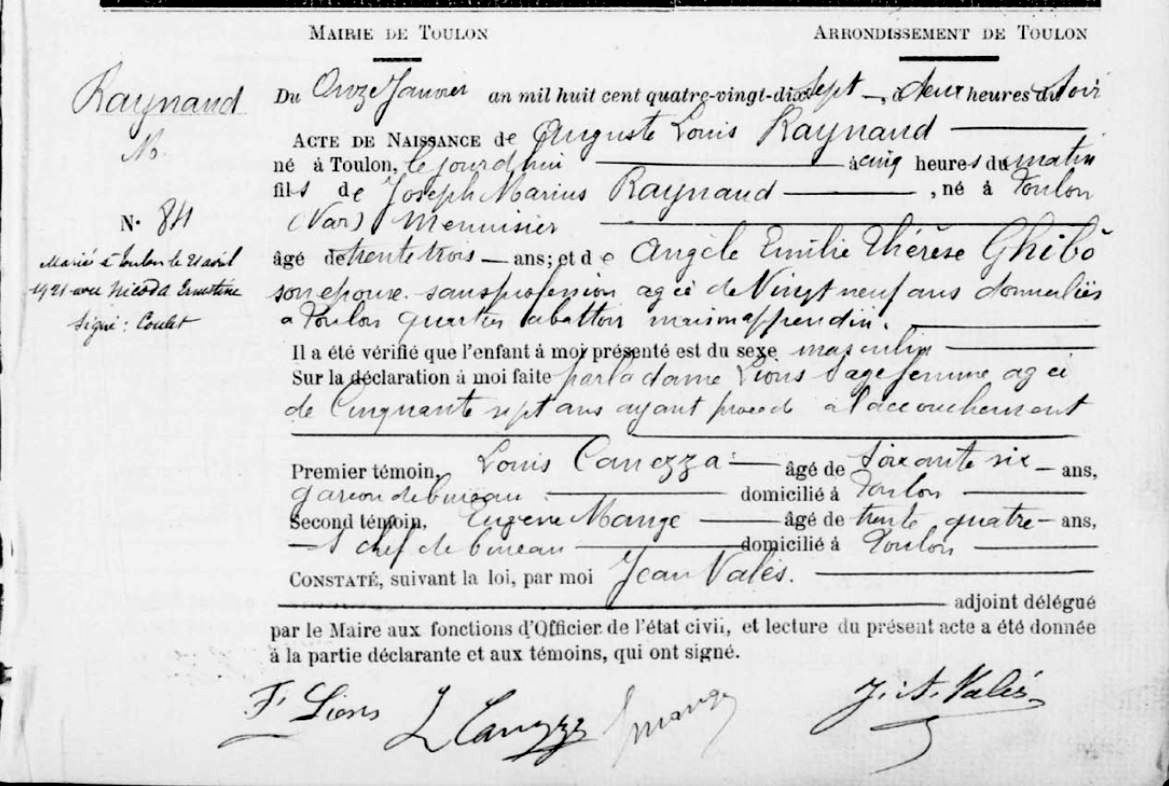 MAIRIE DE TOULON
ARRONDISSEMENT DE TOULON
Raynaud
N° 84
Marié à Toulon le 21 avril
1921 avec Nicoda Ernestine
Signé : Coulet
Du Onze Janvier an mil huit cent quatre-vingt-dix sept —, à deux heures du soir
ACTE DE NAISSANCE de Auguste Louis Raynaud
né à Toulon, ce jourd'hui à cinq heures du matin
fils de Joseph Marius Raynaud, né à Toulon
(Var) menuisier
âgé de trente trois — ans; et de Angèle Emilie Thérèse Ghibo
son epouse sans profession agée de Vingt neuf ans domiciliés
a Toulon quartier abattoir maison
Il a été vérifié que l'enfant à moi présenté est du sexe masculin
Sur la déclaration à moi faite par la dame Lions sage femme agée
de Cinquante sept ans ayant procédé à l'accouchement
Premier témoin, Louis Canezza — âgé de soixante six — ans,
garcon de bureau domicilié à Toulon
Second témoin, Eugène Mange — âgé de trente quatre — ans,
chef de bureau domicilié à Toulon
CONSTATÉ, suivant la loi, par moi Jean Valès.
adjoint délégué
par le Maire aux fonctions d'Officier de l'état civil, et lecture du présent acte a été donnée
à la partie déclarante et aux témoins, qui ont signé.
F. Lions L Canezza Emange J. A. Valès